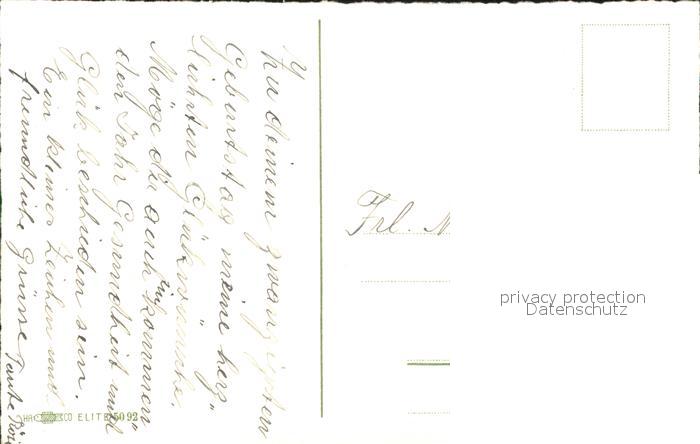 Zu deinem zwanzigsten
Geburtstag meine herz„
lichsten Glükwünsche.
Möge dir auch im kommen„
den Jahr Gesundheit und
Glük beschieden sein.
Ein kleines Zeichen und
freundliche Grüsse
Tante
Frl. N
privacy protection
Datenschutz
HA CO ELITE 5092